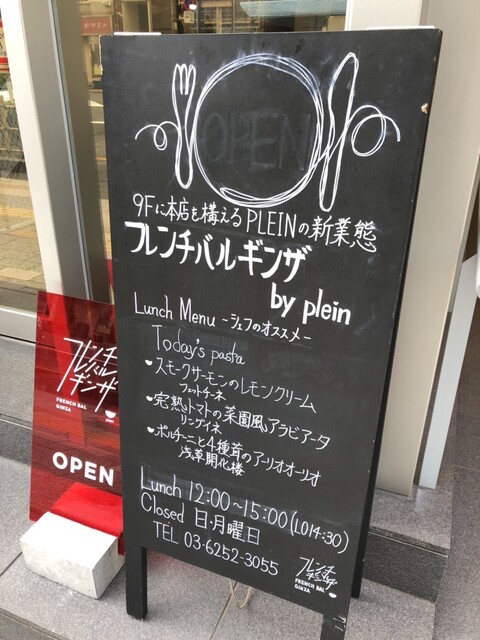 OPEN
9Fに本店を構えるPLEINの新業態
フレンチバルギンザ
by plein
Lunch Menu -シェフのオススメ-
Today's pasta
スモークサーモンのレモンクリーム
フェットチーネ
完熟トマトの菜園風アラビアータ
リングイネ
ポルチーニと4種茸のアーリオオーリオ
浅草開化楼
Lunch 12:00~15:00(LO14:30)
Closed 日・月曜日
TEL 03-6252-3055
フレンチバルギンザ
FRENCH BAL
GINZA
フレンチ
バル
ギンザ
FRENCH BAL
GINZA
OPEN